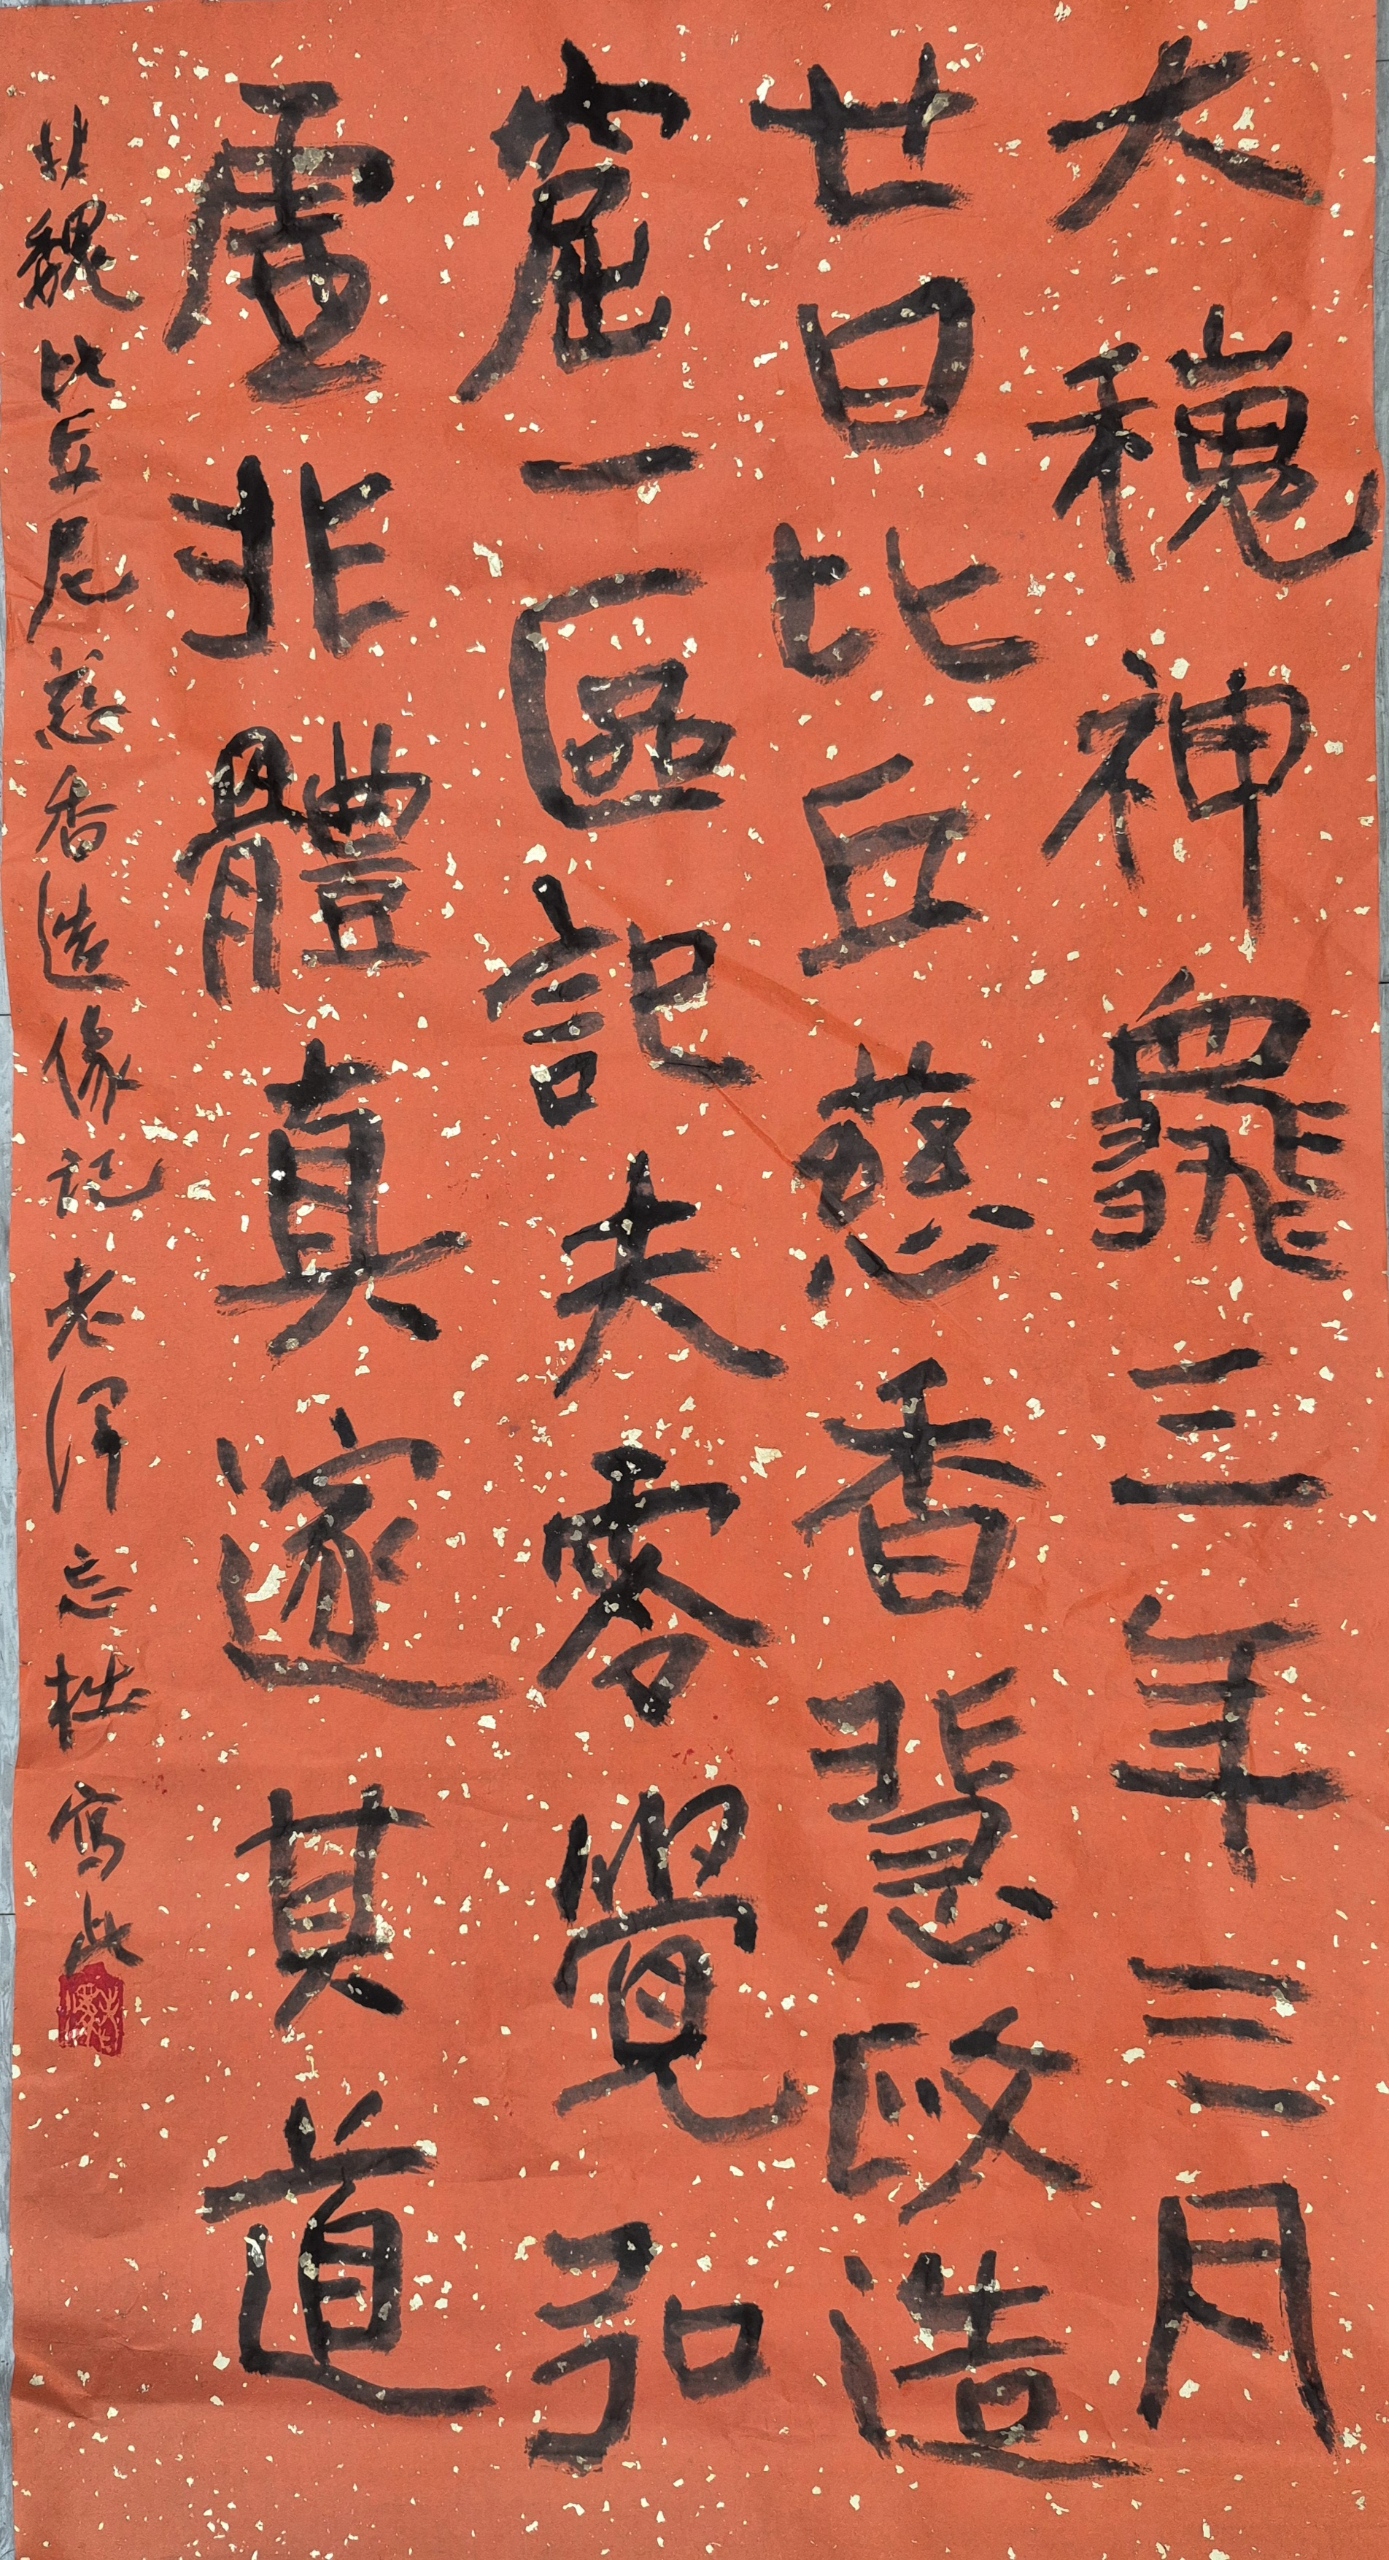 大魏神龜三年三月
廿日比丘慈香慧政造
窟一區記夫零覺弘
虛非體真邃其道
北魏比丘尼慈香造像記 老澤忘拙寫此